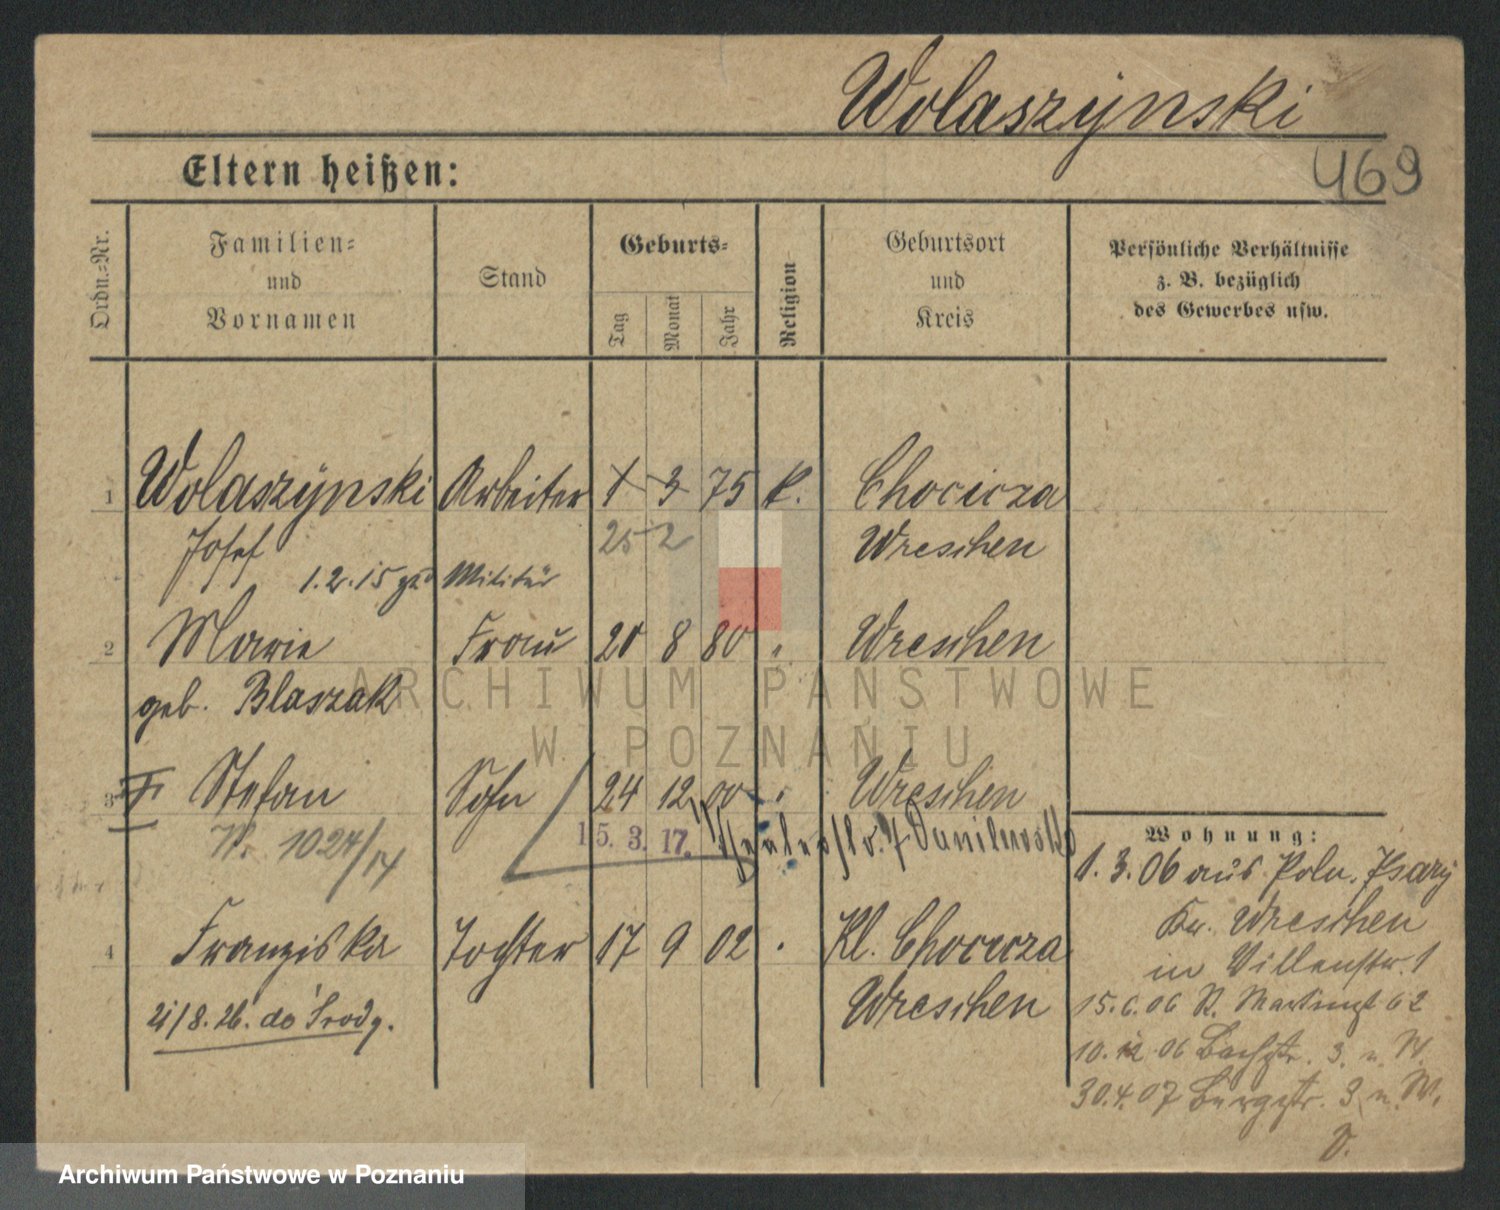 Wolaszÿnski
469
Eltern heißen:
Ordn.-Nr.
Familien-
und
Vornamen
Stand
Geburts-
Tag
Monat
Jahr
Religion
Geburtsort
und
Kreis
Persönliche Verhältnisse
z. B. bezüglich
des Gewerbes usw.
1 Wolaszÿnski Arbeiter 1 3 75 k. Chocicza
Josef 25 2 Wreschen
1.2.15 zu Militär
2 Marie Frau 20 8 80 Wreschen
geb. Blaszak
3 Stefan Sohn 24 12 00 Wreschen
W. 1024/17 15. 3. 17.
4 Franziska Tochter 17 9 02 Kl. Chocicza
21/8. 26. do Środy. Wreschen
Wohnung:
1. 3. 06 aus Poln. Psary
Kr. Wreschen
in Villenstr. 1
15.6.06 St. Martinstr 62
10. 12 06 Bachstr. 3. n. W.
30.4.07 Bergstr. 3 n. W.
ARCHIWUM PAŃSTWOWE
W POZNANIU
Archiwum Państwowe w Poznaniu